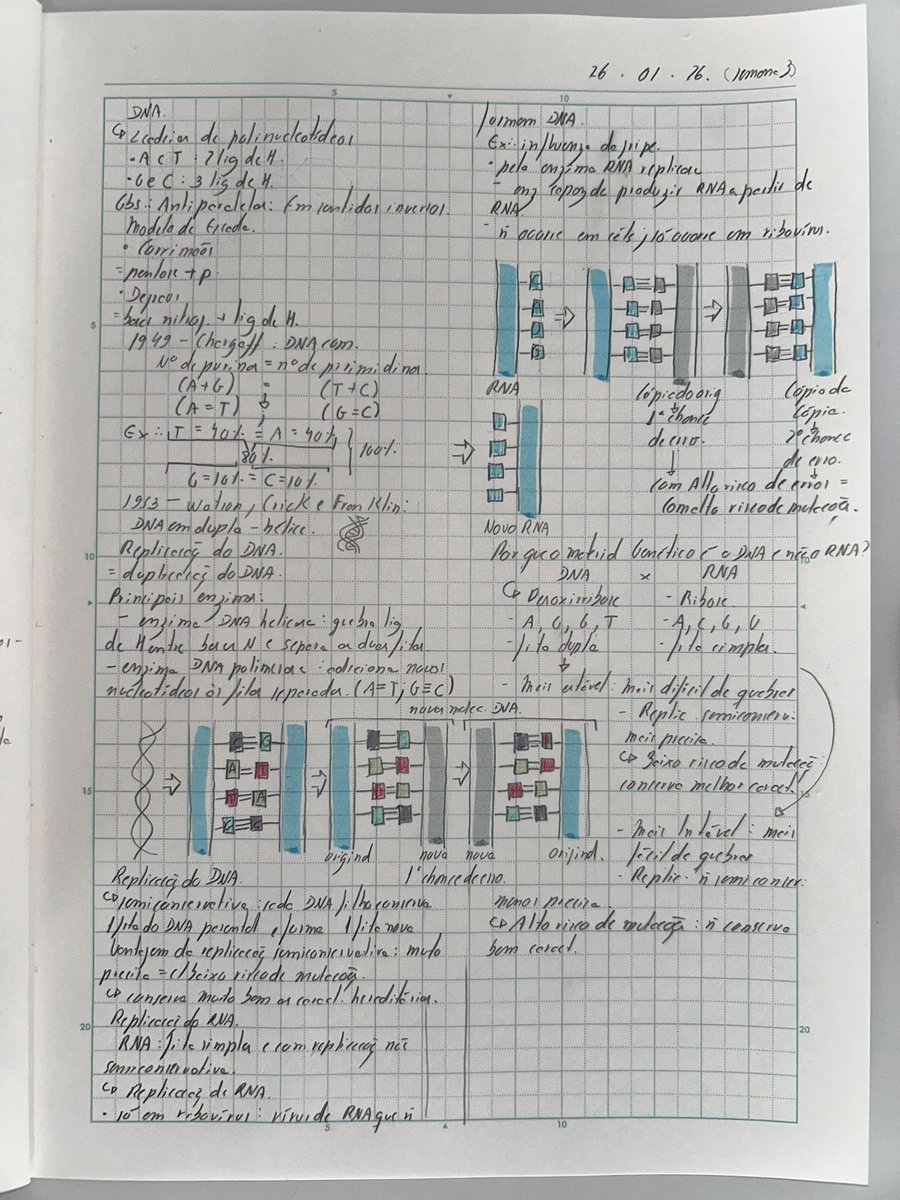 26 . 01 . 26. (semana 3)
DNA.
↳ 2 cadeias de polinucleotídeos
• A e T : 2 lig de H.
• G e C : 3 lig de H.
Obs.: Antiparalelas: Em sentidos inversos.
Modelo de Escada.
• Corrimãos
= pentose + p.
• Degraus
= bases nitrog + lig de H.
1949 - Chargaff : DNA com.
Nº de purina = nº de pirimidina
(A+G) = (T+C)
(A=T) ; (G=C)
Ex.: T = 40% = A = 40%
80% 100%
G=10% = C=10%
1953 - Watson, Crick e Franklin:
DNA em dupla-hélice.
Replicação do DNA.
= duplicação do DNA.
Principais enzimas:
- enzima DNA helicase: quebra lig
de H entre bases N e separa as duas fitas
- enzima DNA polimerase: adiciona novos
nucleotídeos às fitas separadas. (A=T; G≡C)
novas molec. DNA.
C G
A T
T A
G C
original nova nova original.
1ª chance de erro.
Replicação do DNA
↳ semiconservativa: cada DNA filha conserva
1 fita do DNA parental e forma 1 fita nova
Vantagem da replicação semiconservativa: muto
precisa = c/ baixo risco de mutação.
↳ conserva muito bem as caract. hereditárias.
Replicação do RNA.
RNA: fita simples e com replicação não
semiconservativa.
↳ Replicação de RNA.
• só em ribovírus: vírus de RNA que ñ
formam DNA.
Ex.: influenza da gripe.
• pela enzima RNA replicase
- enz capaz de produzir RNA a partir de
RNA
- ñ ocorre em céls, só ocorre em ribovírus.
C
A
U
G
RNA
Cópia do orig
1ª chance
de erro.
Cópia da
cópia.
2ª chance
de erro.
com Alto risco de erros =
com alto risco de mutação.
Novo RNA
Por que o material Genético é o DNA e não o RNA?
DNA x RNA
↳ Desoxirribose - Ribose
- A, C, G, T - A, C, G, U
- fita dupla - fita simples.
- Mais estável: mais difícil de quebrar
- Replic. semiconserv.
mais precisa.
↳ Baixo risco de mutação:
conserva melhor caract.
- Mais Instável: mais
fácil de quebrar
- Replic. ñ semiconser:
menos precisa.
↳ Alto risco de mutação: ñ conserva
bem caract.